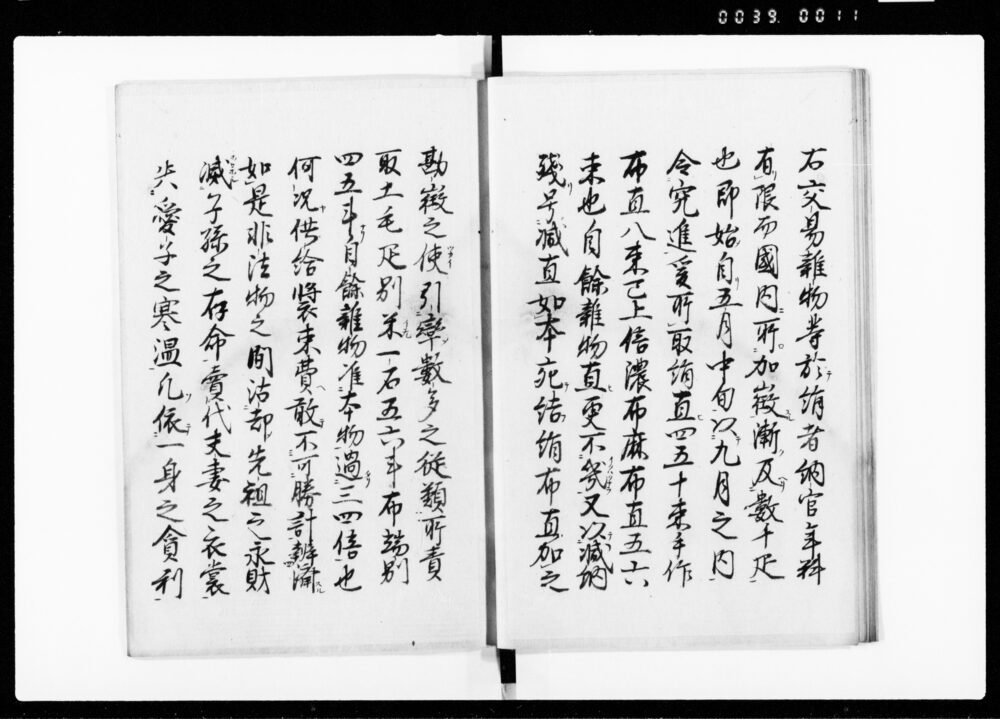 0039. 0011
右交易雑物等於絹者納官年料
有限而國内所加徴漸及數千疋
也即始自五月中旬以九月之内
令究進爰所取絹直四五十束手作
布直八束已上信濃布麻布直五六
束也自餘雑物直更不幾又以減納
残号減直如本宛結絹布直加之
勘徴之使引率數多之従類所責
取土毛疋別米一石五六斗布端別
四五斗自餘雑物准本物過三四倍也
何況供給將束費敢不可勝計辨濟
如是非法物之間沽却先祖之永財
減子孫之存命賣代夫妻之衣裳
失愛子之寒温凡依一身之貪利